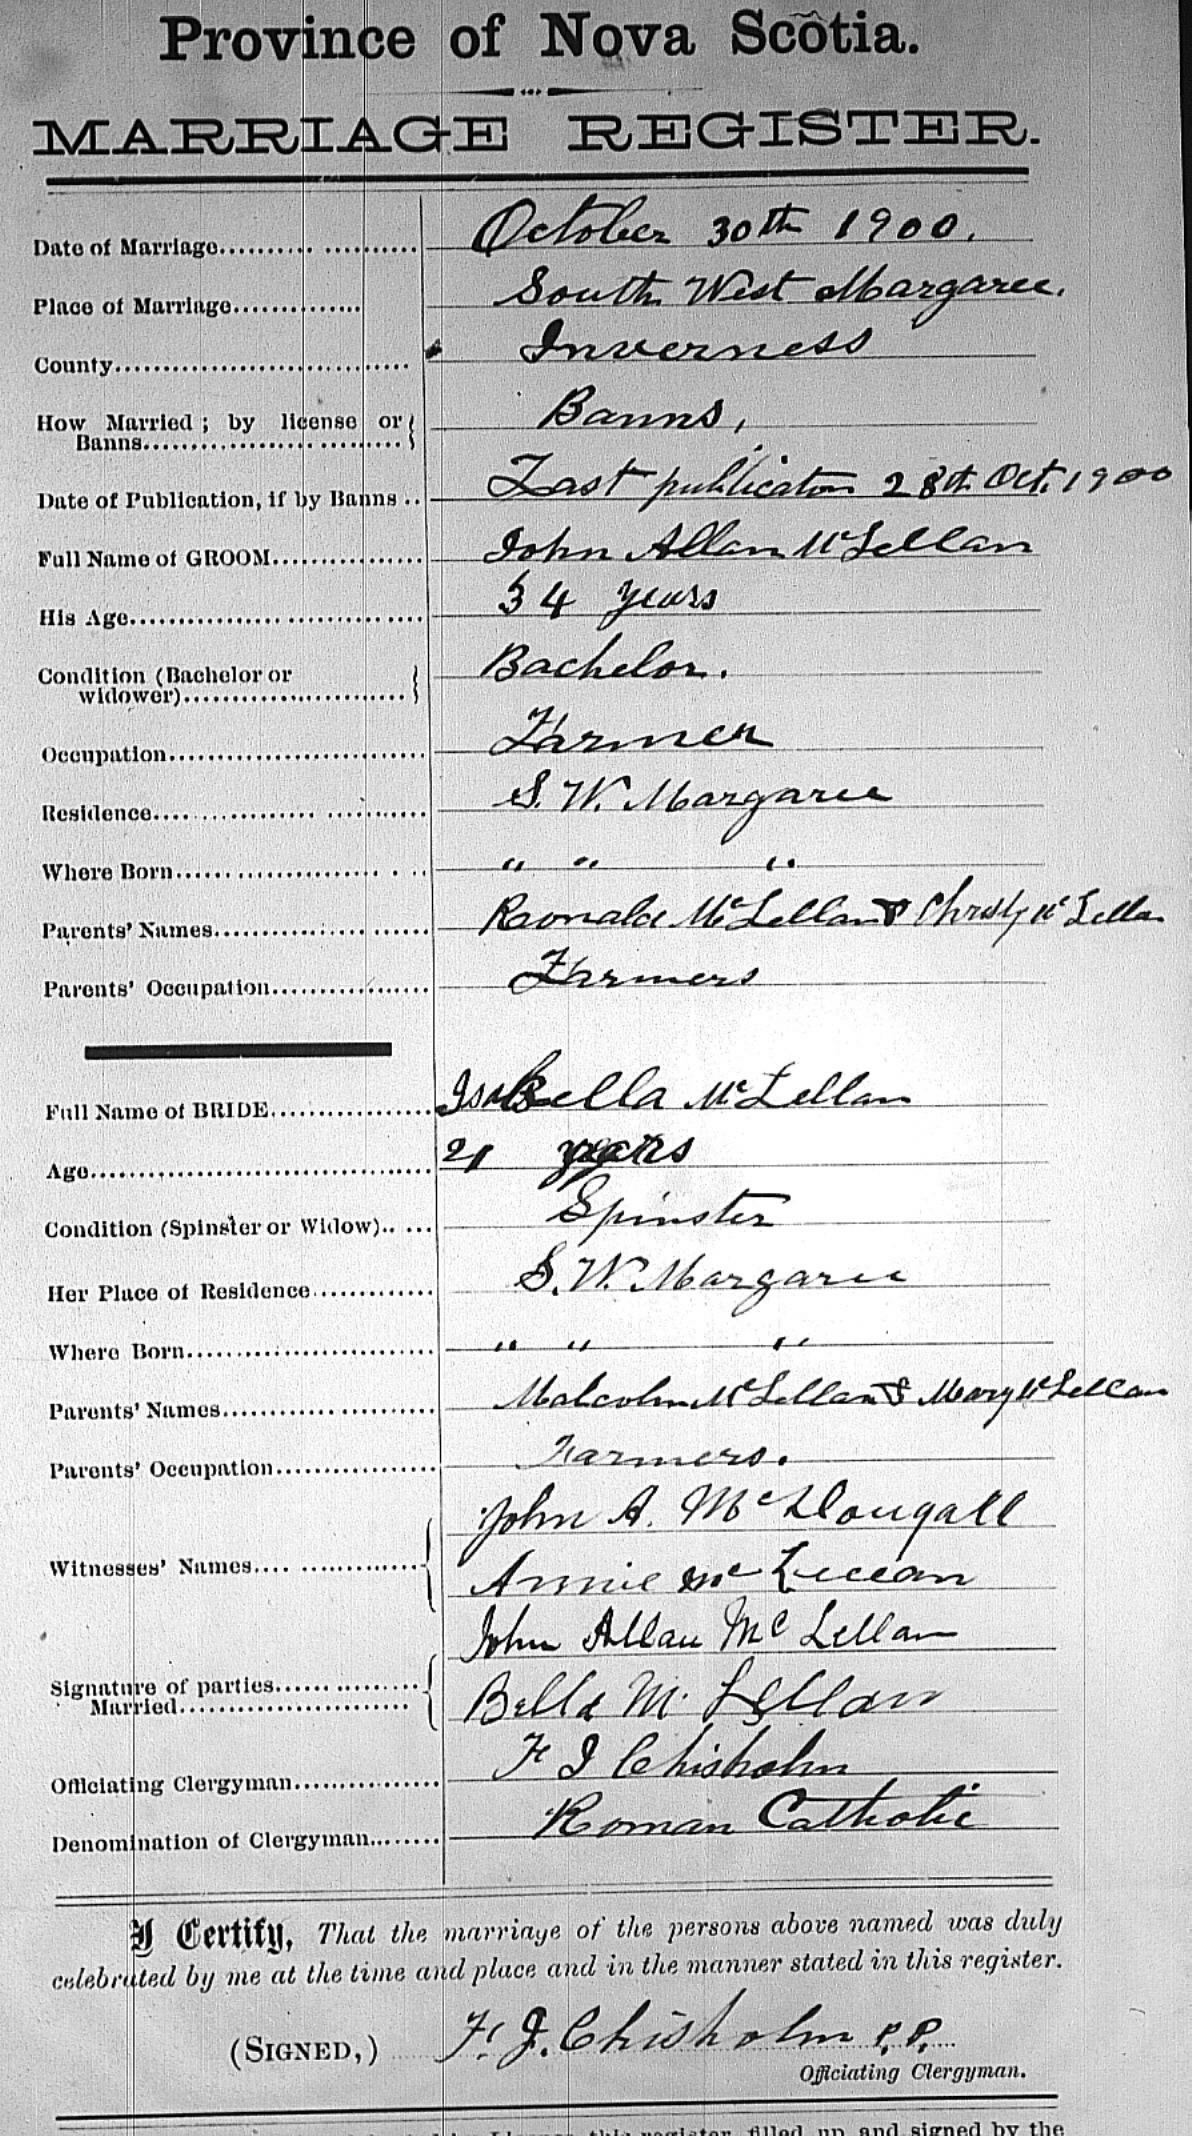 Province of Nova Scotia.
MARRIAGE REGISTER.
Date of Marriage.......... October 30th 1900.
Place of Marriage.......... South West Margaree.
County.......... Inverness
How Married ; by license or Banns.......... Banns,
Date of Publication, if by Banns .. Last publication 28th Oct. 1900
Full Name of GROOM.......... John Allan McLellan
His Age.......... 34 years
Condition (Bachelor or widower).......... Bachelor.
Occupation.......... Farmer
Residence.......... S. W. Margaree
Where Born.......... " " "
Parents' Names.......... Ronald McLellan & Christy McLellan
Parents' Occupation.......... Farmers
Full Name of BRIDE.......... Isabella McLellan
Age.......... 21 years
Condition (Spinster or Widow).. ... Spinster
Her Place of Residence.......... S. W. Margaree
Where Born.......... " " "
Parents' Names.......... Malcolm McLellan & Mary McLellan
Parents' Occupation.......... Farmers.
Witnesses' Names.......... John A. McDougall
Annie McLellan
Signature of parties Married.......... John Allan McLellan
Bella McLellan
Officiating Clergyman.......... F J Chisholm
Denomination of Clergyman.......... Roman Catholic
I Certify, That the marriage of the persons above named was duly
celebrated by me at the time and place and in the manner stated in this register.
(SIGNED,) F. J. Chisholm P.P.
Officiating Clergyman.
this register filled up and signed by the